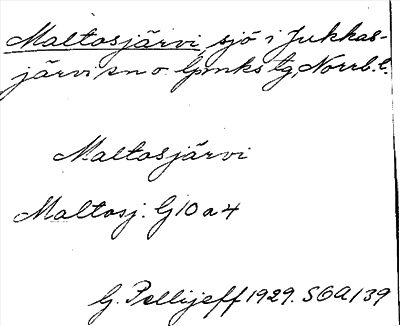 Maltosjärvi, sjö i Jukkas-
järvi sn o. Gmks tg, Norrb. l.
Maltosjärvi
Maltosj. G 10 a 4
G. Pellijeff 1929. SOA 139